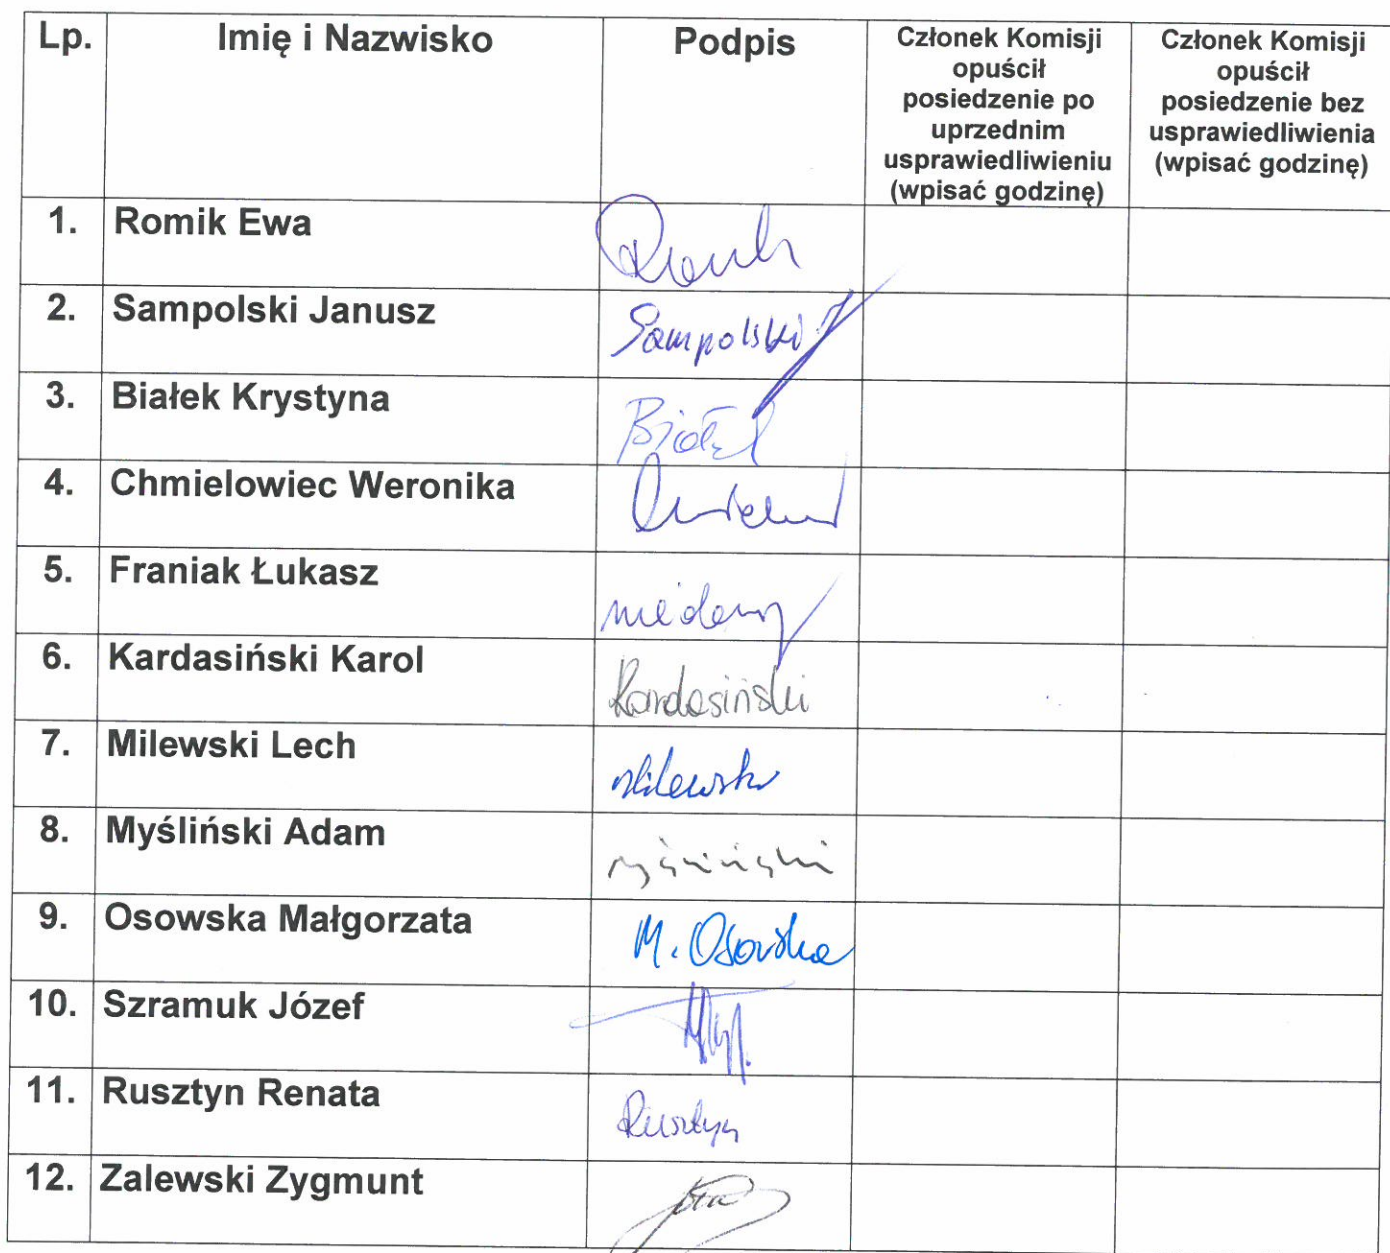 Lp. Imię i Nazwisko Podpis Członek Komisji opuścił posiedzenie po uprzednim usprawiedliwieniu (wpisać godzinę) Członek Komisji opuścił posiedzenie bez usprawiedliwienia (wpisać godzinę)
1. Romik Ewa
2. Sampolski Janusz Sampolski
3. Białek Krystyna Białek
4. Chmielowiec Weronika
5. Franiak Łukasz
6. Kardasiński Karol Kardasiński
7. Milewski Lech Milewski
8. Myśliński Adam
9. Osowska Małgorzata M. Osowska
10. Szramuk Józef
11. Rusztyn Renata Rusztyn
12. Zalewski Zygmunt